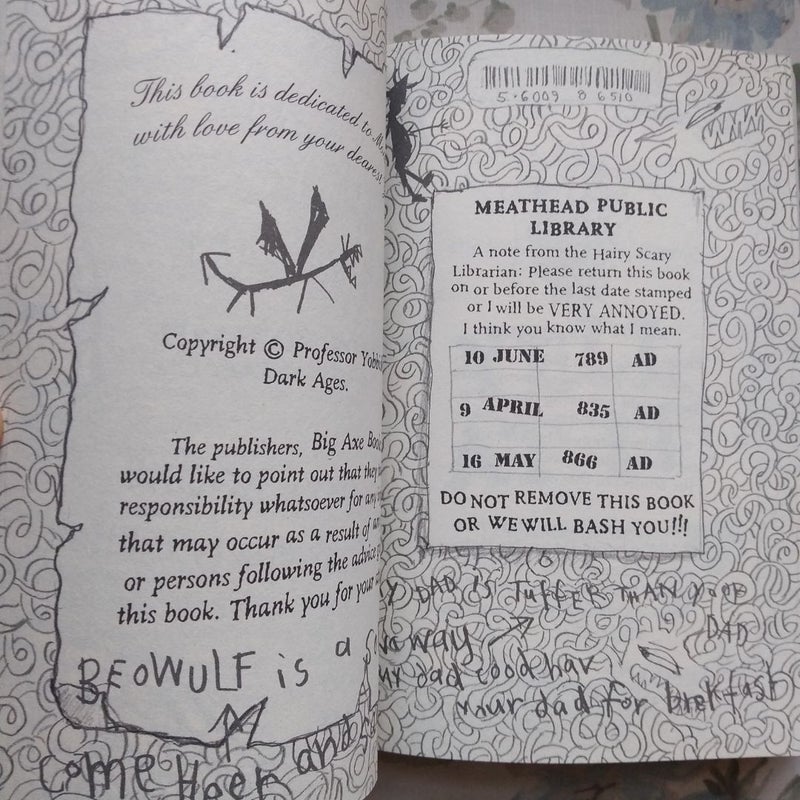 This book is dedicated to
with love from your dearest
Copyright © Professor
Dark Ages.
The publishers, Big Axe
would like to point out that
responsibility whatsoever for
that may occur as a result of
or persons following the advice
this book. Thank you for your
BEOWULF is a
COME HEER and
5·6009 8 6510
MEATHEAD PUBLIC
LIBRARY
A note from the Hairy Scary
Librarian: Please return this book
on or before the last date stamped
or I will be VERY ANNOYED.
I think you know what I mean.
10 JUNE 789 AD
9 APRIL 835 AD
16 MAY 866 AD
DO NOT REMOVE THIS BOOK
OR WE WILL BASH YOU!!!
DAD iS TUFFER THAN
DAD
way
dad cood hav
your dad for brekfast